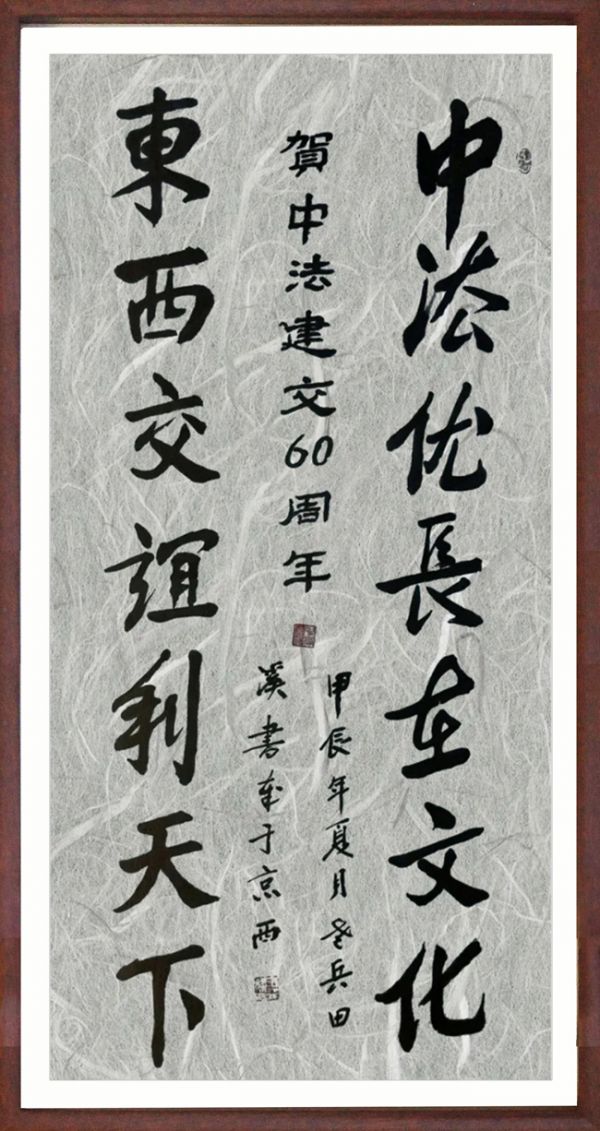 中法优長在文化
東西交誼利天下
賀中法建交60周年
甲辰年夏月老兵田
溪書奉于京西